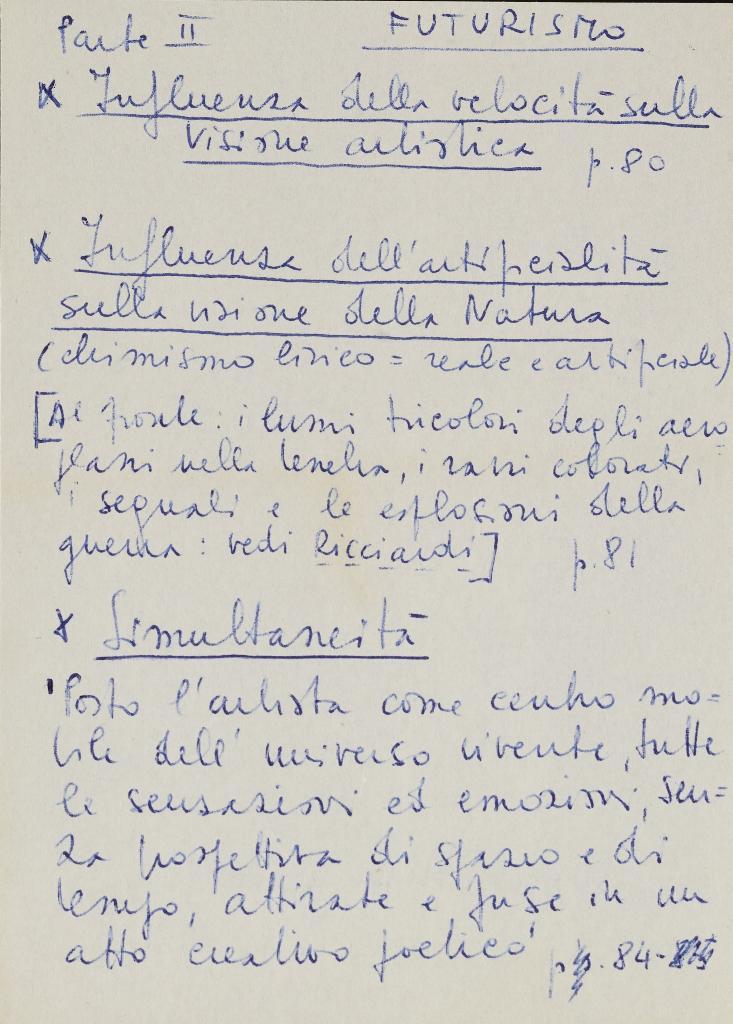 Parte II FUTURISMO
x Influenza della velocità sulla
visione artistica p. 80
x Influenza dell'artificialità
sulla visione della Natura
(chimismo lirico = reale e artificiale)
[Al fronte: i lumi tricolori degli aero
plani nella tenebra, i razzi colorati,
i segnali e le esplosioni della
guerra: vedi Ricciardi] p. 81
x Simultaneità
'Posto l'artista come centro mo=
bile dell'universo vivente, tutte
le sensazioni ed emozioni, sen=
za prospettiva di spazio e di
tempo, attirate e fuse in un
atto creativo poetico' p. 84-